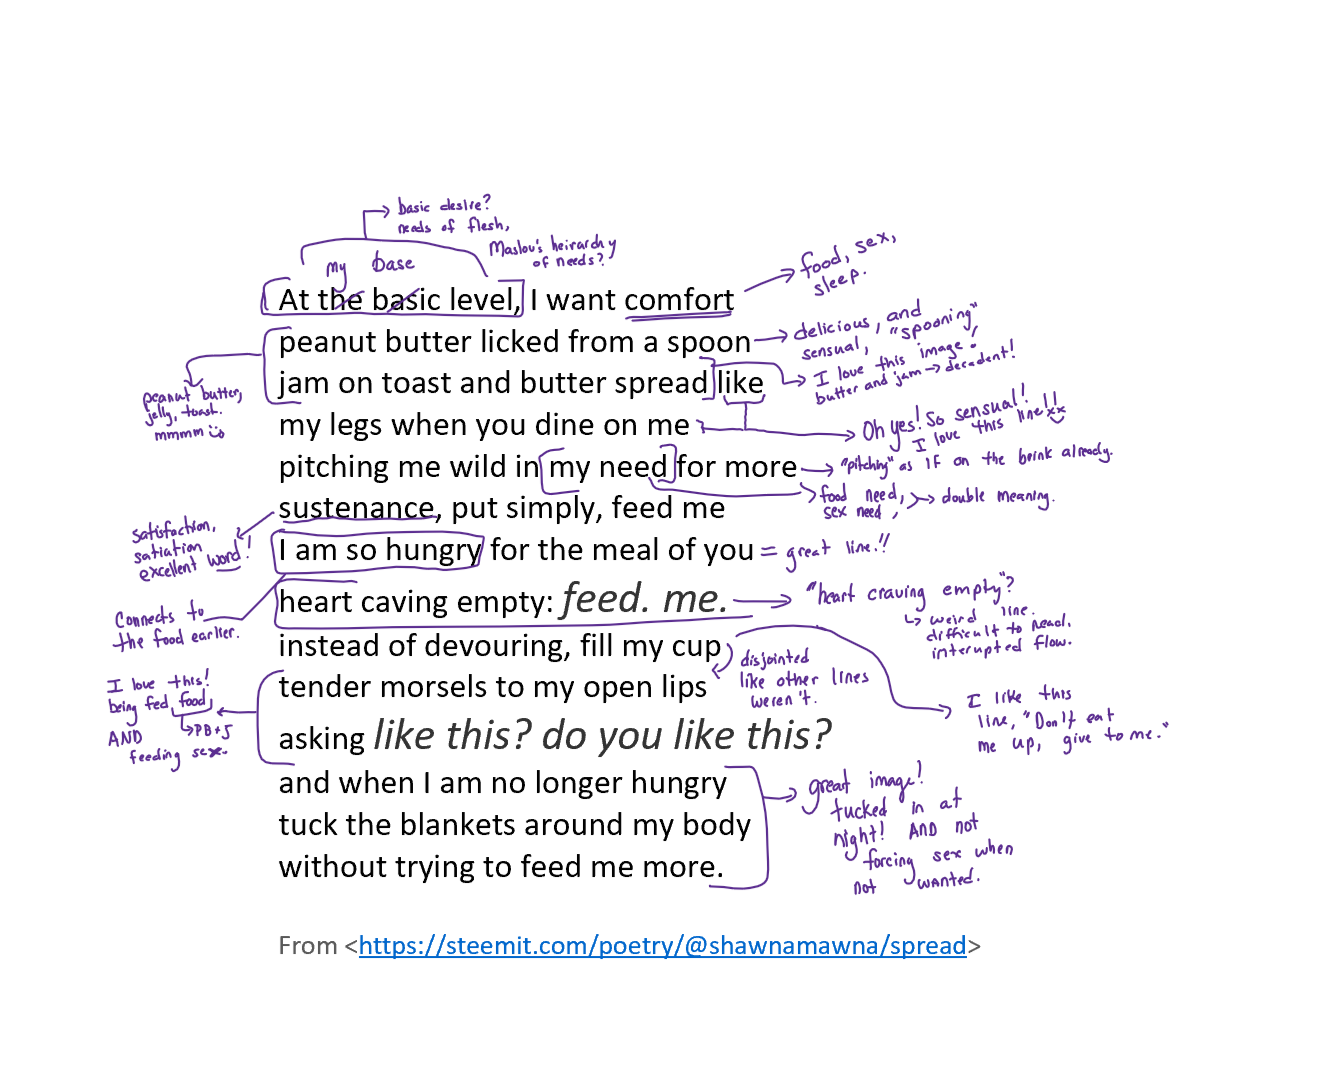 basic desire?
needs of flesh,
Maslow's heirarchy
of needs?
my base
At the basic level, I want comfort
food, sex,
sleep.
peanut butter licked from a spoon
delicious, and
sensual, "spooning"
jam on toast and butter spread like
I love this image!
butter and jam → decadent!
peanut butter,
jelly, toast.
mmmm
my legs when you dine on me
Oh yes! So sensual!
I love this line!!
xx
pitching me wild in my need for more
"pitching" as if on the brink already.
food need,
sex need,
double meaning.
sustenance, put simply, feed me
satisfaction,
satiation
excellent word!
I am so hungry for the meal of you
= great line!!
heart caving empty: feed. me.
"heart craving empty"?
weird line.
difficult to read.
interupted flow.
Connects to
the food earlier.
instead of devouring, fill my cup
disjointed
like other lines
weren't.
I like this
line, "Don't eat
me up, give to me."
tender morsels to my open lips
I love this!
being fed food,
PB+J
AND
feeding sex.
asking like this? do you like this?
and when I am no longer hungry
tuck the blankets around my body
without trying to feed me more.
great image!
tucked in at
night! AND not
forcing sex when
not wanted.
From <https://steemit.com/poetry/@shawnamawna/spread>